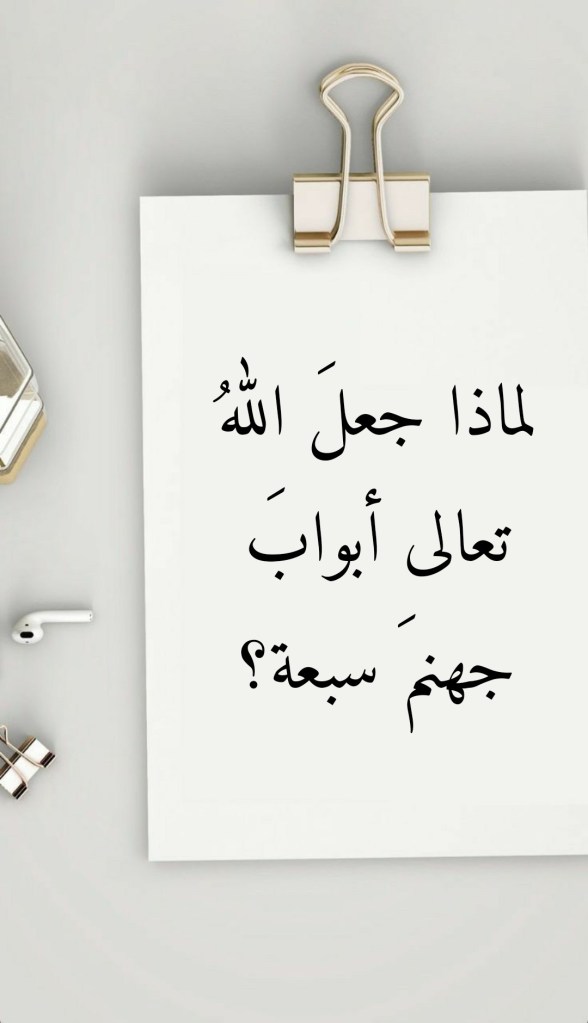 لماذا جعلَ اللهُ
تعالى أبوابَ
جهنمَ سبعة؟